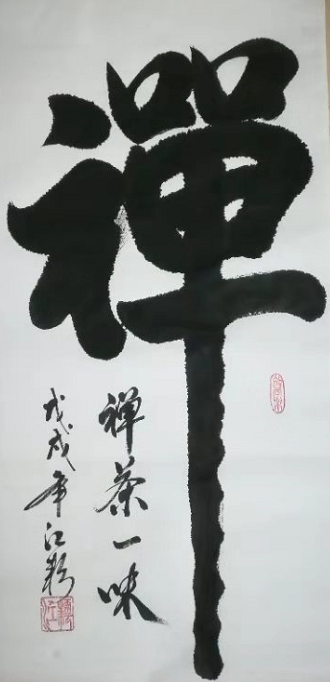 禪
禅茶一味
戊戌年江